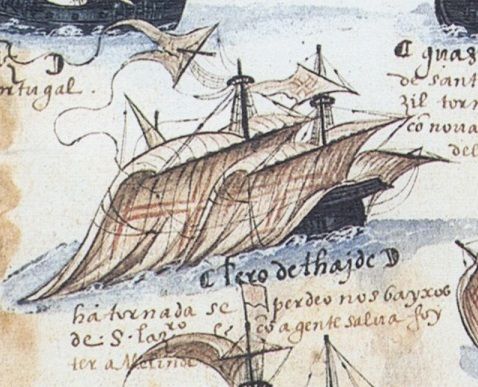 ortugal .
quas
de sant
zil torn
cõ noua
del
Pero de thajde
há tornada se perdeo nos bayxos
de S. lazro e cõ a gente salua foy
ter a Melinde